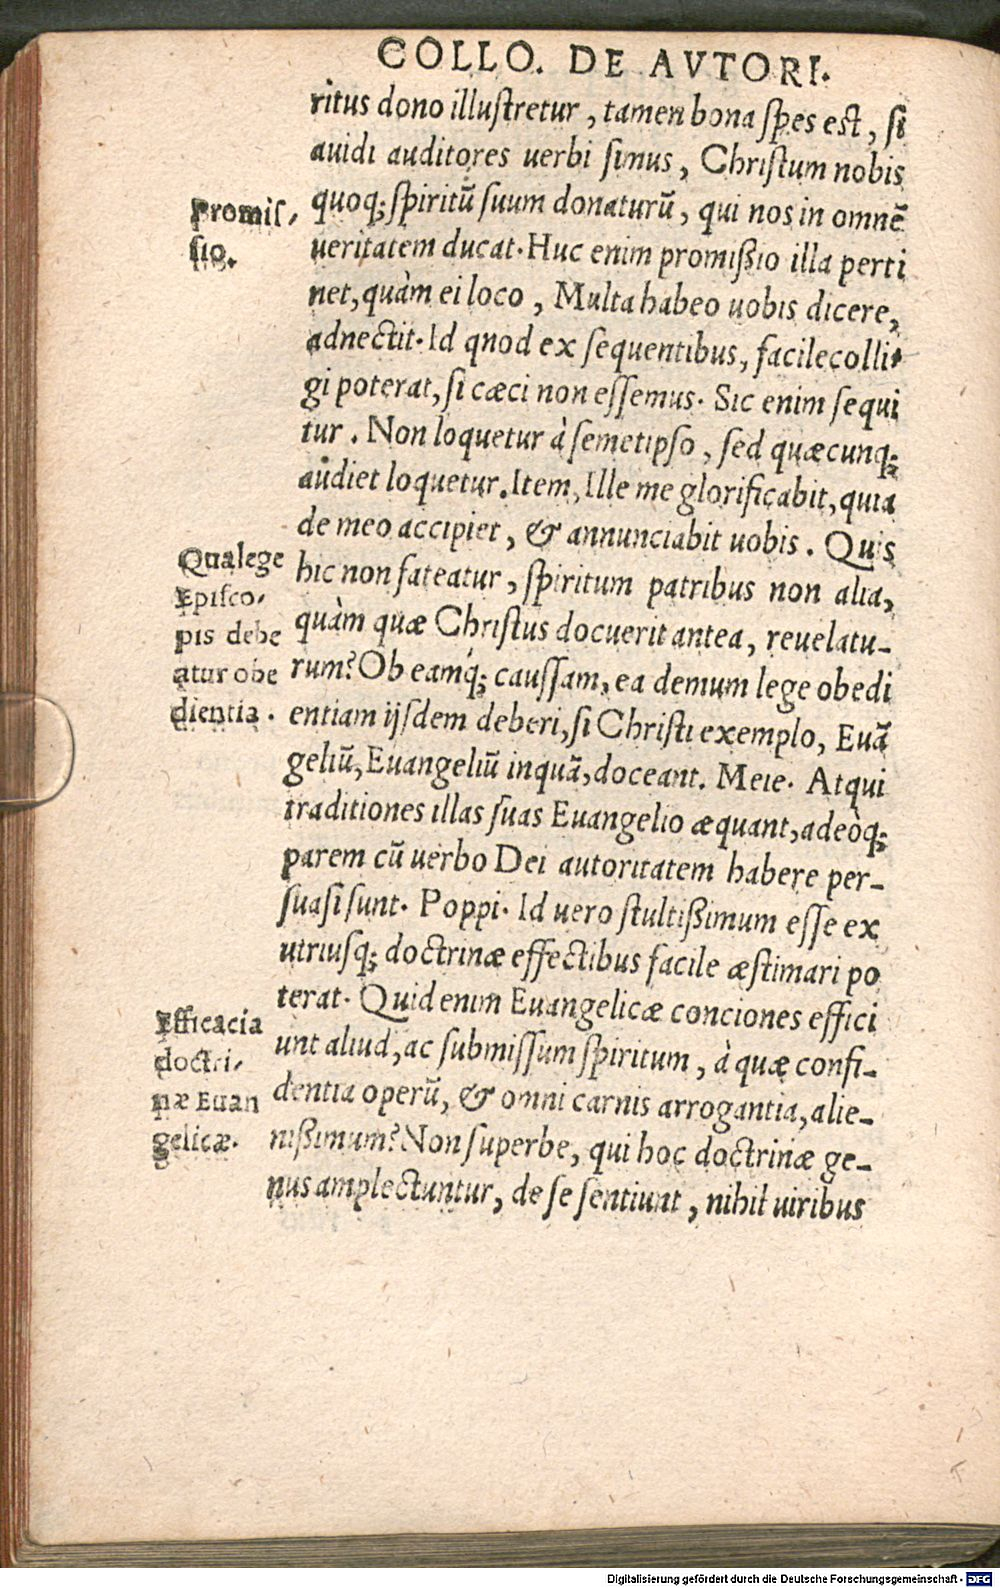 COLLO. DE AVTORI.
ritus dono illuſtretur, tamen bona ſpes est, ſi
auidi auditores uerbi ſimus, Chriſtum nobis
quoq; ſpiritū ſuum donaturū, qui nos in omnē
ueritatem ducat. Huc enim promißio illa perti
net, quàm ei loco, Multa habeo uobis dicere,
adnectit. Id qnod ex ſequentibus, facile colli-
gi poterat, ſi cæci non eſſemus. Sic enim ſequi
tur. Non loquetur à ſemetipſo, ſed quæcunq;
audiet loquetur. Item, Ille me glorificabit, quia
de meo accipiet, & annunciabit uobis. Quis
hic non fateatur, ſpiritum patribus non alia,
quàm quæ Chriſtus docuerit antea, reuelatu-
rum? Ob eamq́; cauſſam, ea demum lege obedi
entiam ijſdem deberi, ſi Chriſti exemplo, Euā
geliū, Euangeliū inquā, doceant. Meie. Atqui
traditiones illas ſuas Euangelio æquant, adeòq;
parem cū uerbo Dei autoritatem habere per-
ſuaſi ſunt. Poppi. Id uero ſtultißimum eſſe ex
utriuſq; doctrinæ effectibus facile æſtimari po
terat. Quid enim Euangelicæ conciones effici
unt aliud, ac ſubmiſſum ſpiritum, à quæ confi-
dentia operū, & omni carnis arrogantia, alie-
nißimum? Non ſuperbe, qui hoc doctrinæ ge-
nus amplectuntur, de ſe ſentiunt, nihil uiribus
Promiſ-
ſio.
Qua lege
Epiſco-
pis debe
atur obe
dientia.
Efficacia
doctri-
næ Euan
gelicæ.
Digitalisierung gefördert durch die Deutsche Forschungsgemeinschaft - DFG